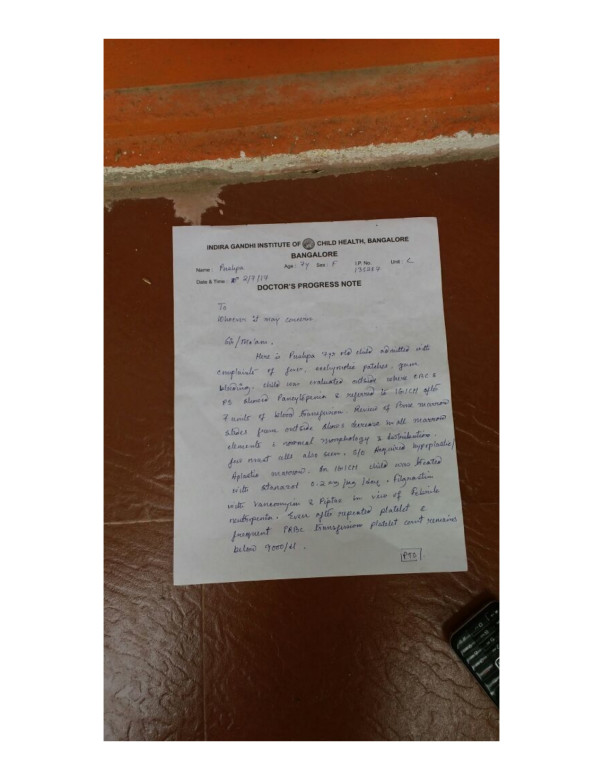 INDIRA GANDHI INSTITUTE OF CHILD HEALTH, BANGALORE
BANGALORE
Name : Pushpa Age : 7y Sex : F I.P. No. Unit : C
Date & Time : 2/7/14
DOCTOR'S PROGRESS NOTE
To
Whoever it may concern
Sir/Ma'am,
Here is Pushpa 7yr old child admitted with
complaints of fever, ecchymotic patches, gum
bleeding. Child was evaluated outside where CBC &
PS showed Pancytopenia & referred to IGICH after
units of blood transfusion. Review of Bone marrow
slides from outside shows decrease in all marrow
elements normal morphology & distribution.
few mast cells also seen. Acquired hypoplastic/
Aplastic marrow. In IGICH child was treated
with Stanazol , Filgrastim
with Vancomycin & Piptaz in view of Febrile
neutropenia. Even after repeated platelet &
frequent PRBC transfusion platelet count remains
below 9000/
PTO